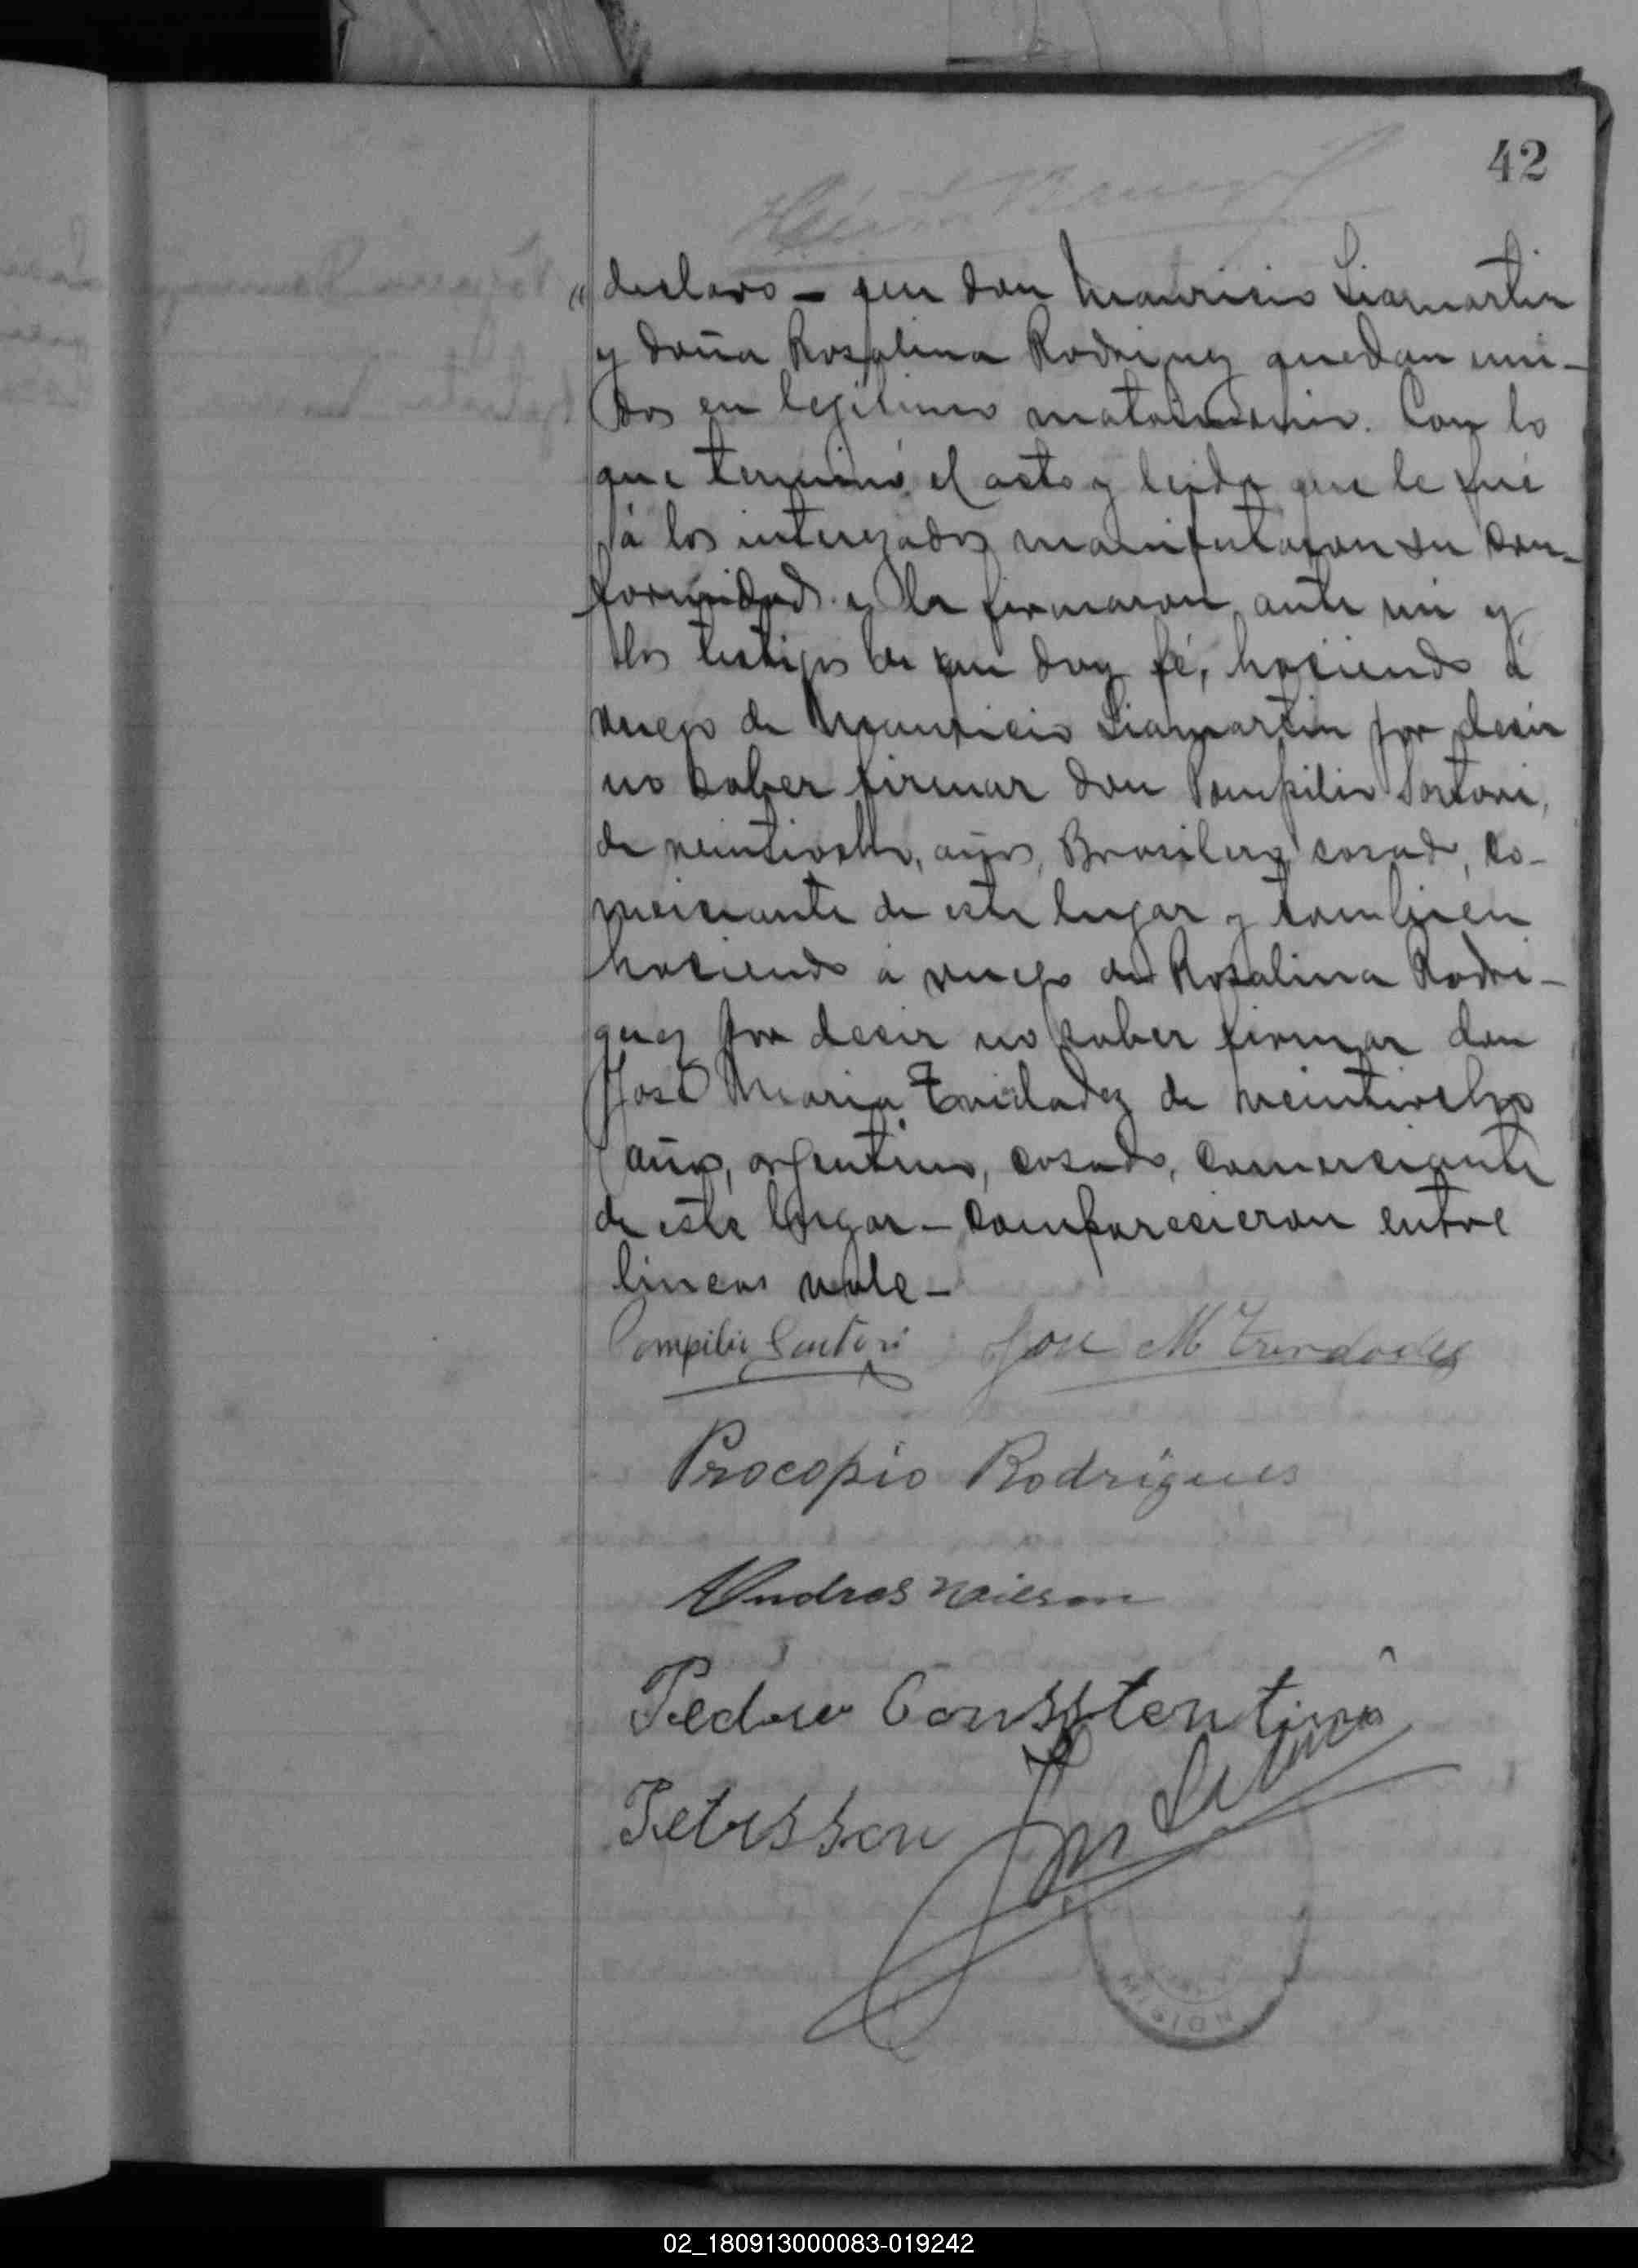 42
" declaro - que don Mauricio Liamartin
y doña Rosalina Rodriguez quedan uni-
dos en legítimo matrimonio. Con lo
que terminó el acto y leida que le fué
á los interezados manifestaron su con-
formidad y la firmaron ante mi y
los testigos de que doy fé, haciendo á
ruego de Mauricio Liamartin por decir
no saber firmar don Pompilio Sartori,
de veintiocho, años, Brasilero, casado, co-
merciante de este lugar y tambien
haciendo á ruego de Rosalina Rodri-
guez por decir no saber firmar don
José Maria de veintiocho
años, argentino, casado, comerciante
de este lugar - comparecieron entre
lineas vale -
Pompilio Sartori José M
Procopio Rodrigues
Andres
Pedro Consstantino
Petersson
MISION
02_180913000083-019242